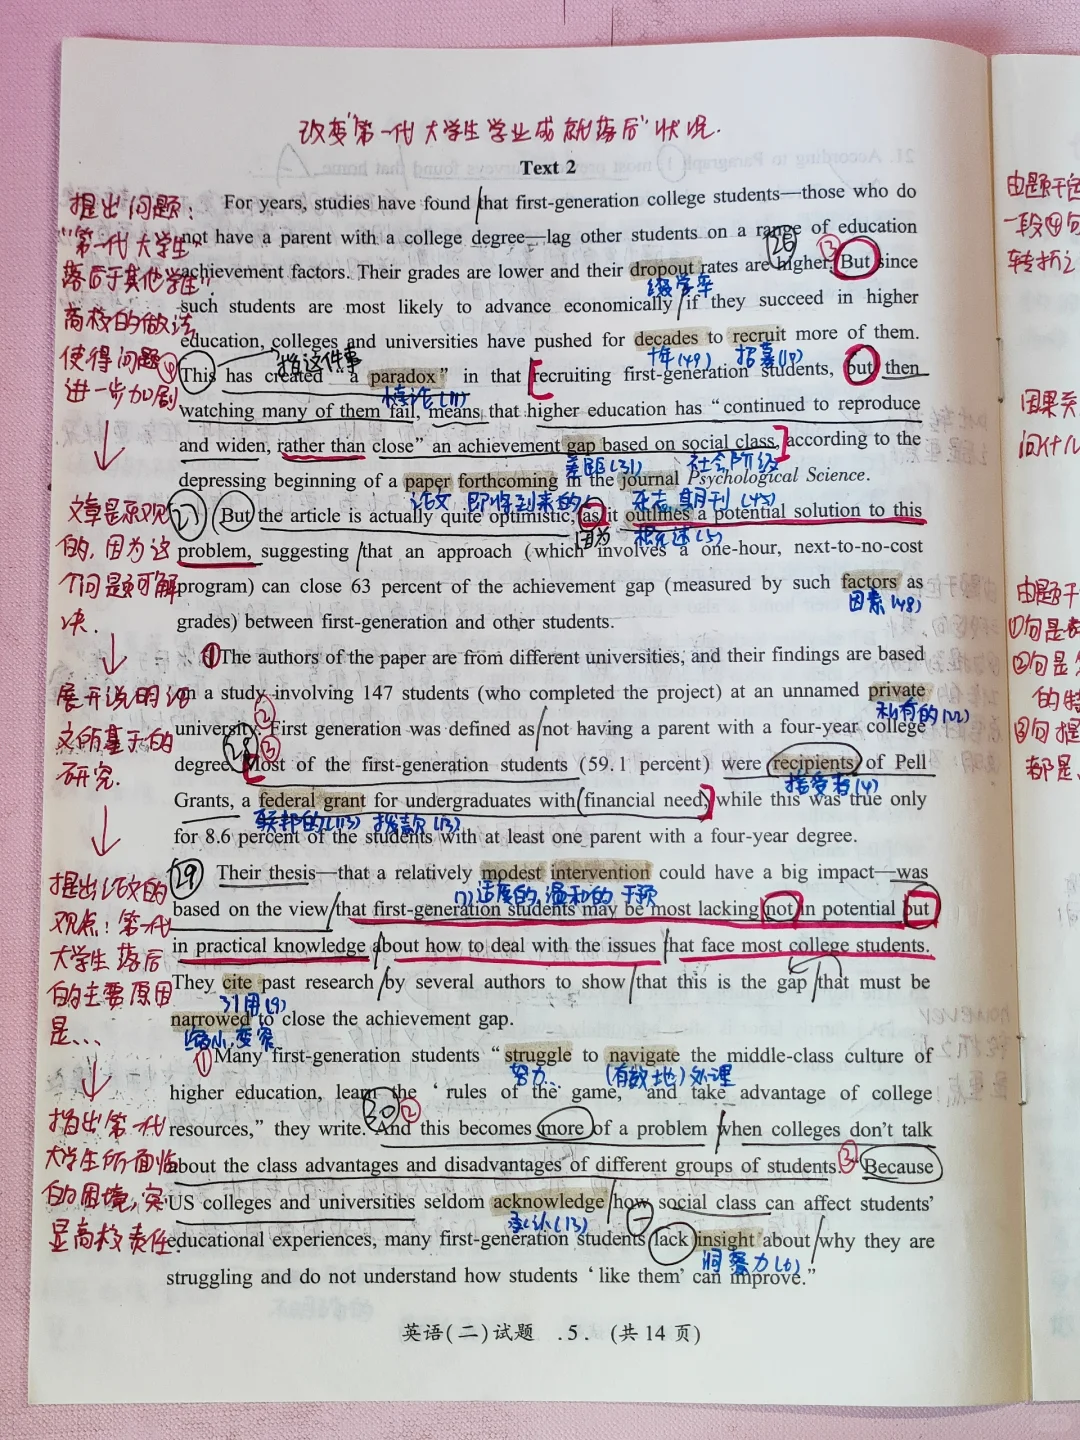 改变"第一代大学生学业成就落后"状况.
Text 2
For years, studies have found that first-generation college students—those who do
not have a parent with a college degree—lag other students on a range of education
achievement factors. Their grades are lower and their dropout rates are higher. But since
such students are most likely to advance economically if they succeed in higher
education, colleges and universities have pushed for decades to recruit more of them.
This has created "a paradox" in that recruiting first-generation students, but then
watching many of them fail, means that higher education has "continued to reproduce
and widen, rather than close" an achievement gap based on social class, according to the
depressing beginning of a paper forthcoming in the journal Psychological Science.
But the article is actually quite optimistic, as it outlines a potential solution to this
problem, suggesting that an approach (which involves a one-hour, next-to-no-cost
program) can close 63 percent of the achievement gap (measured by such factors as
grades) between first-generation and other students.
The authors of the paper are from different universities, and their findings are based
on a study involving 147 students (who completed the project) at an unnamed private
university. First generation was defined as not having a parent with a four-year college
degree. Most of the first-generation students (59.1 percent) were recipients of Pell
Grants, a federal grant for undergraduates with financial need, while this was true only
for 8.6 percent of the students with at least one parent with a four-year degree.
Their thesis—that a relatively modest intervention could have a big impact—was
based on the view that first-generation students may be most lacking not in potential but
in practical knowledge about how to deal with the issues that face most college students.
They cite past research by several authors to show that this is the gap that must be
narrowed to close the achievement gap.
Many first-generation students "struggle to navigate the middle-class culture of
higher education, learn the 'rules of the game,' and take advantage of college
resources," they write. And this becomes more of a problem when colleges don't talk
about the class advantages and disadvantages of different groups of students. Because
US colleges and universities seldom acknowledge how social class can affect students'
educational experiences, many first-generation students lack insight about why they are
struggling and do not understand how students 'like them' can improve."
英语(二)试题 .5. (共14页)
提出问题:
"第一代大学生"
落后于其他学生"
高校的做法
使得问题
进一步加剧
文章是乐观
的,因为这
个问题可解
决.
展开说明论
文所基于的
研究.
提出论文的
观点:第一代
大学生落后
的主要原因
是...
指出第一代
大学生所面临
的困境,突
显高校责任.
26
②
辍学率
④
指这件事
十年(49) 招募(10)
悖论(11)
差距(31) 社会阶级
27
论文 即将到来的 杂志期刊(45)
因为 概述(5)
因素(48)
①
私有的(22)
②
28
③
接受者(4)
联邦的(113) 拨款(13)
29
适度的,温和的 干预
引用(9)
缩小,变窄
①
努力 (有效地)处理
30
②
③
承认(13)
洞察力(6)
由题干定
一段④句
转折之
因果关
问什么
由题干
①句是
②句是
的特
③句提
都是